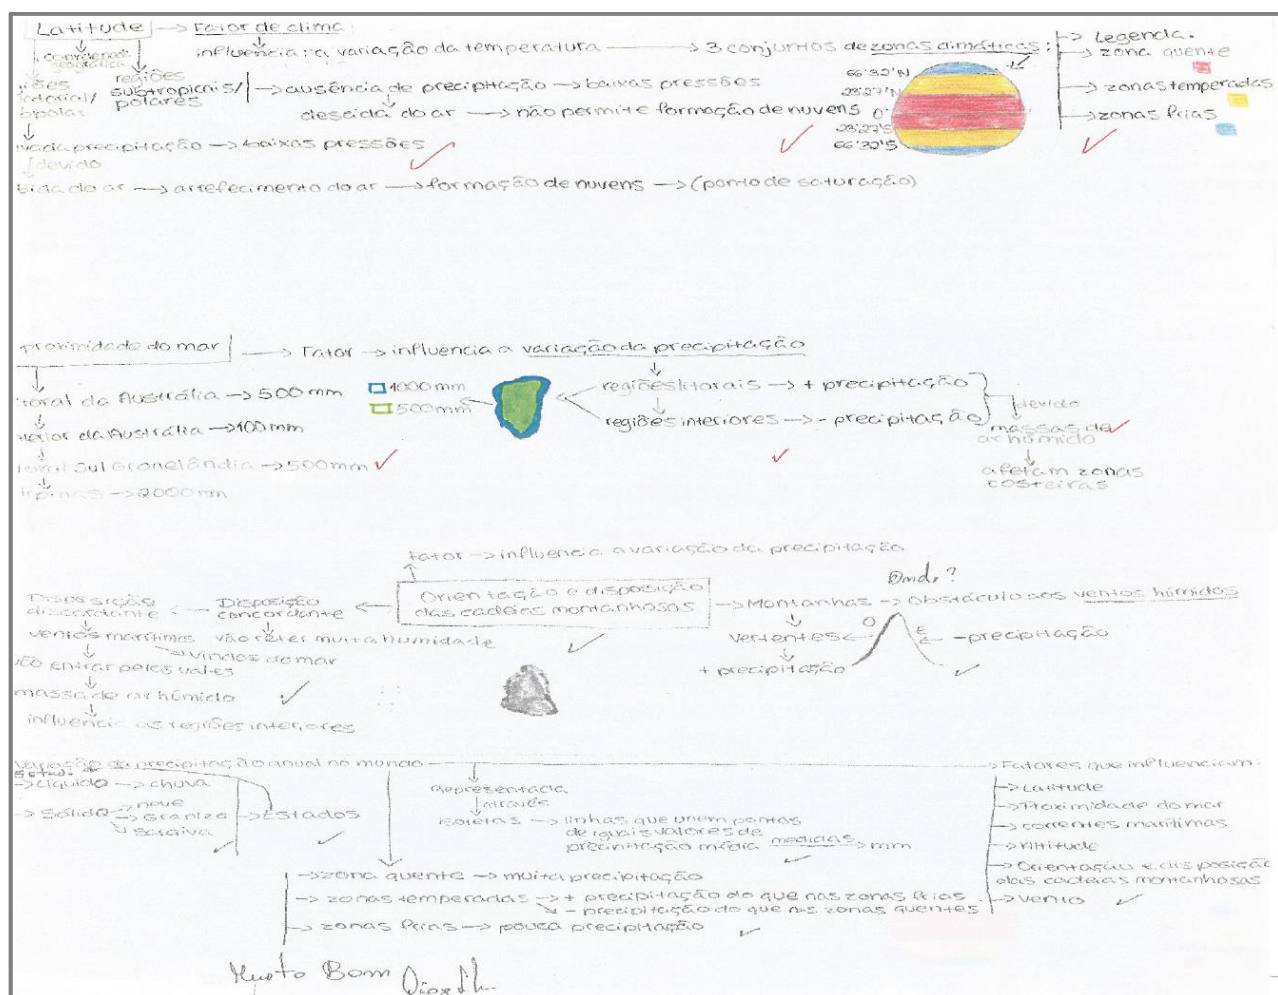 Latitude → Fator de clima
coordenada geográfica
influência: a variação da temperatura → 3 conjuntos de zonas climáticas:
→ Legenda.
→ zona quente
→ zonas temperadas
→ zonas frias
66°32'N
23°27'N
0°
23°27'S
66°32'S
regiões subtropicais/polares → ausência de precipitação → baixas pressões
descida do ar → não permite formação de nuvens
precipitação → baixas pressões
devido
do ar → arrefecimento do ar → formação de nuvens → (ponto de saturação)
proximidade do mar → Fator → influencia a variação da precipitação
toral da Austrália → 500 mm
terior da Austrália → 100 mm
Sul Gronelândia → 500 mm
→ 2000 mm
1000 mm
500 mm
regiões litorais → + precipitação
regiões interiores → - precipitação
devido
massas de ar húmido
afetam zonas costeiras
fator → influencia a variação da precipitação
Orientação e disposição das cadeias montanhosas
Disposição discordante ← Disposição concordante
ventos marítimos
vindos do mar
vão reter muita humidade
vão entrar pelos vales
massa de ar húmido
influencia as regiões interiores
Onde?
→ Montanhas → Obstáculo aos ventos húmidos
vertentes
+ precipitação
O
E
- precipitação
Variação da precipitação anual no mundo
Estado
→ Líquido → chuva
→ Sólido → neve
→ Granizo
→ Saraiva
→ Estados
Representada
através
isoietas → linhas que unem pontos
de iguais valores de
precipitação média medidas → mm
→ Fatores que influenciam
→ Latitude
→ Proximidade do mar
→ correntes marítimas
→ Altitude
→ Orientação e disposição
das cadeias montanhosas
→ vento
→ zona quente → muita precipitação
→ zonas temperadas → + precipitação do que nas zonas frias
- precipitação do que nas zonas quentes
→ zonas frias → pouca precipitação
Muito Bom